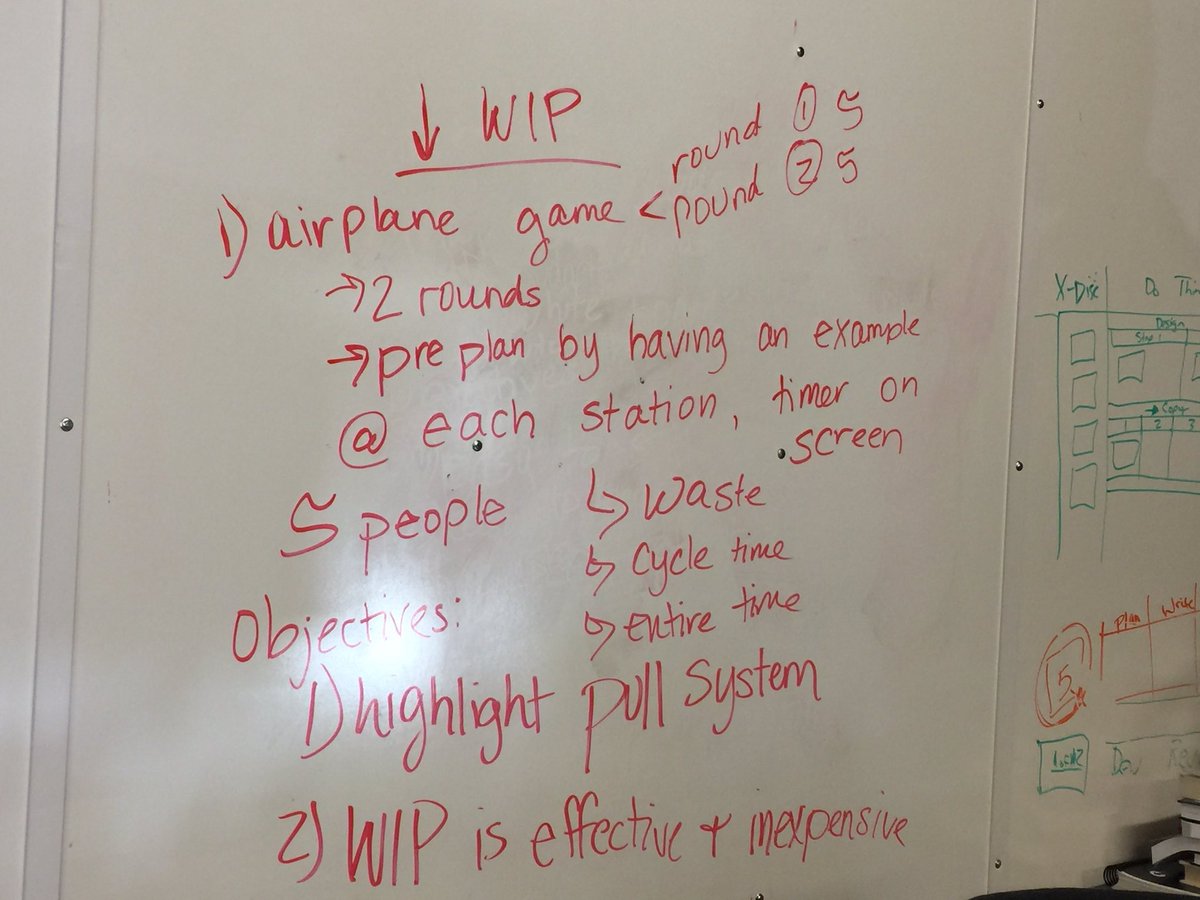 ↓ WIP
1) airplane game < round ① 5
pound ② 5
→ 2 rounds
→ pre plan by having an example
@ each station, timer on
screen
5 people
↳ waste
↳ cycle time
↳ entire time
Objectives:
1) highlight pull system
2) WIP is effective + inexpensive
X-Disc
Do
Design
Step 1
→ Copy
1 2 3
Plan Write
5
Dev